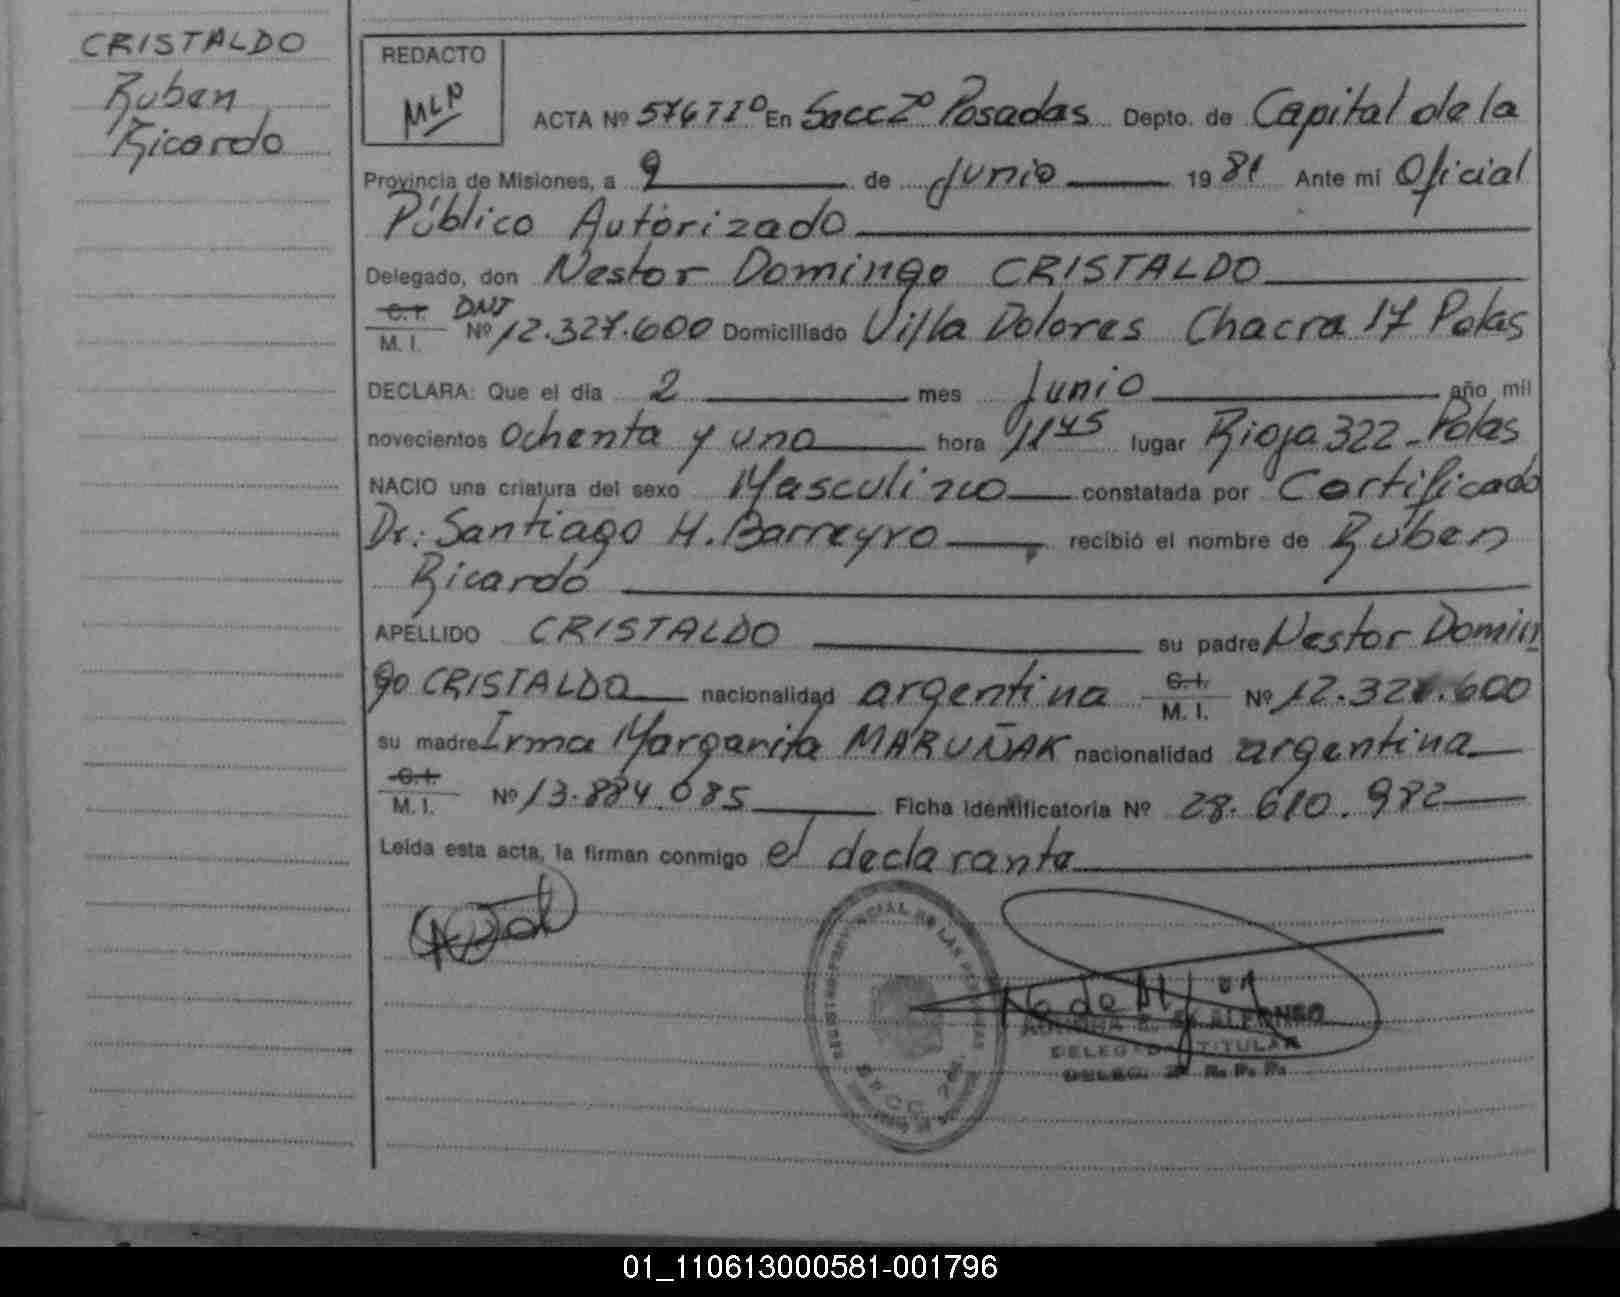 CRISTALDO
Ruben
Ricardo
REDACTO
MLN
ACTA Nº 576 TIº En Secc 2º Posadas Depto. de Capital de la
Provincia de Misiones, a 9 de Junio 1981 Ante mi Oficial
Público Autorizado
Delegado, don Nestor Domingo CRISTALDO
C.I. DNI
M. I. Nº 12.327.600 Domiciliado Villa Dolores Chacra 17 Pdas
DECLARA: Que el día 2 mes Junio año mil
novecientos Ochenta y uno hora 11 45 lugar Rioja 322 - Pdas
NACIO una criatura del sexo Masculino constatada por Certificado
Dr. Santiago H. Barreyro recibió el nombre de Rúben
Ricardo
APELLIDO CRISTALDO su padre Nestor Domin
go CRISTALDO nacionalidad argentina C.I. M. I. Nº 12.327.600
su madre Irma Margarita MARUÑAK nacionalidad argentina
C.I. M. I. Nº 13.884.085 Ficha Identificatoria Nº 28.610.982
Leída esta acta, la firman conmigo el declarante
REGISTRO PROVINCIAL DE LAS PERSONAS
SECC. 2da.
E. de ALFONSO
DELEGADA TITULAR
DELEG. 2ª R. P. P.
01_110613000581-001796